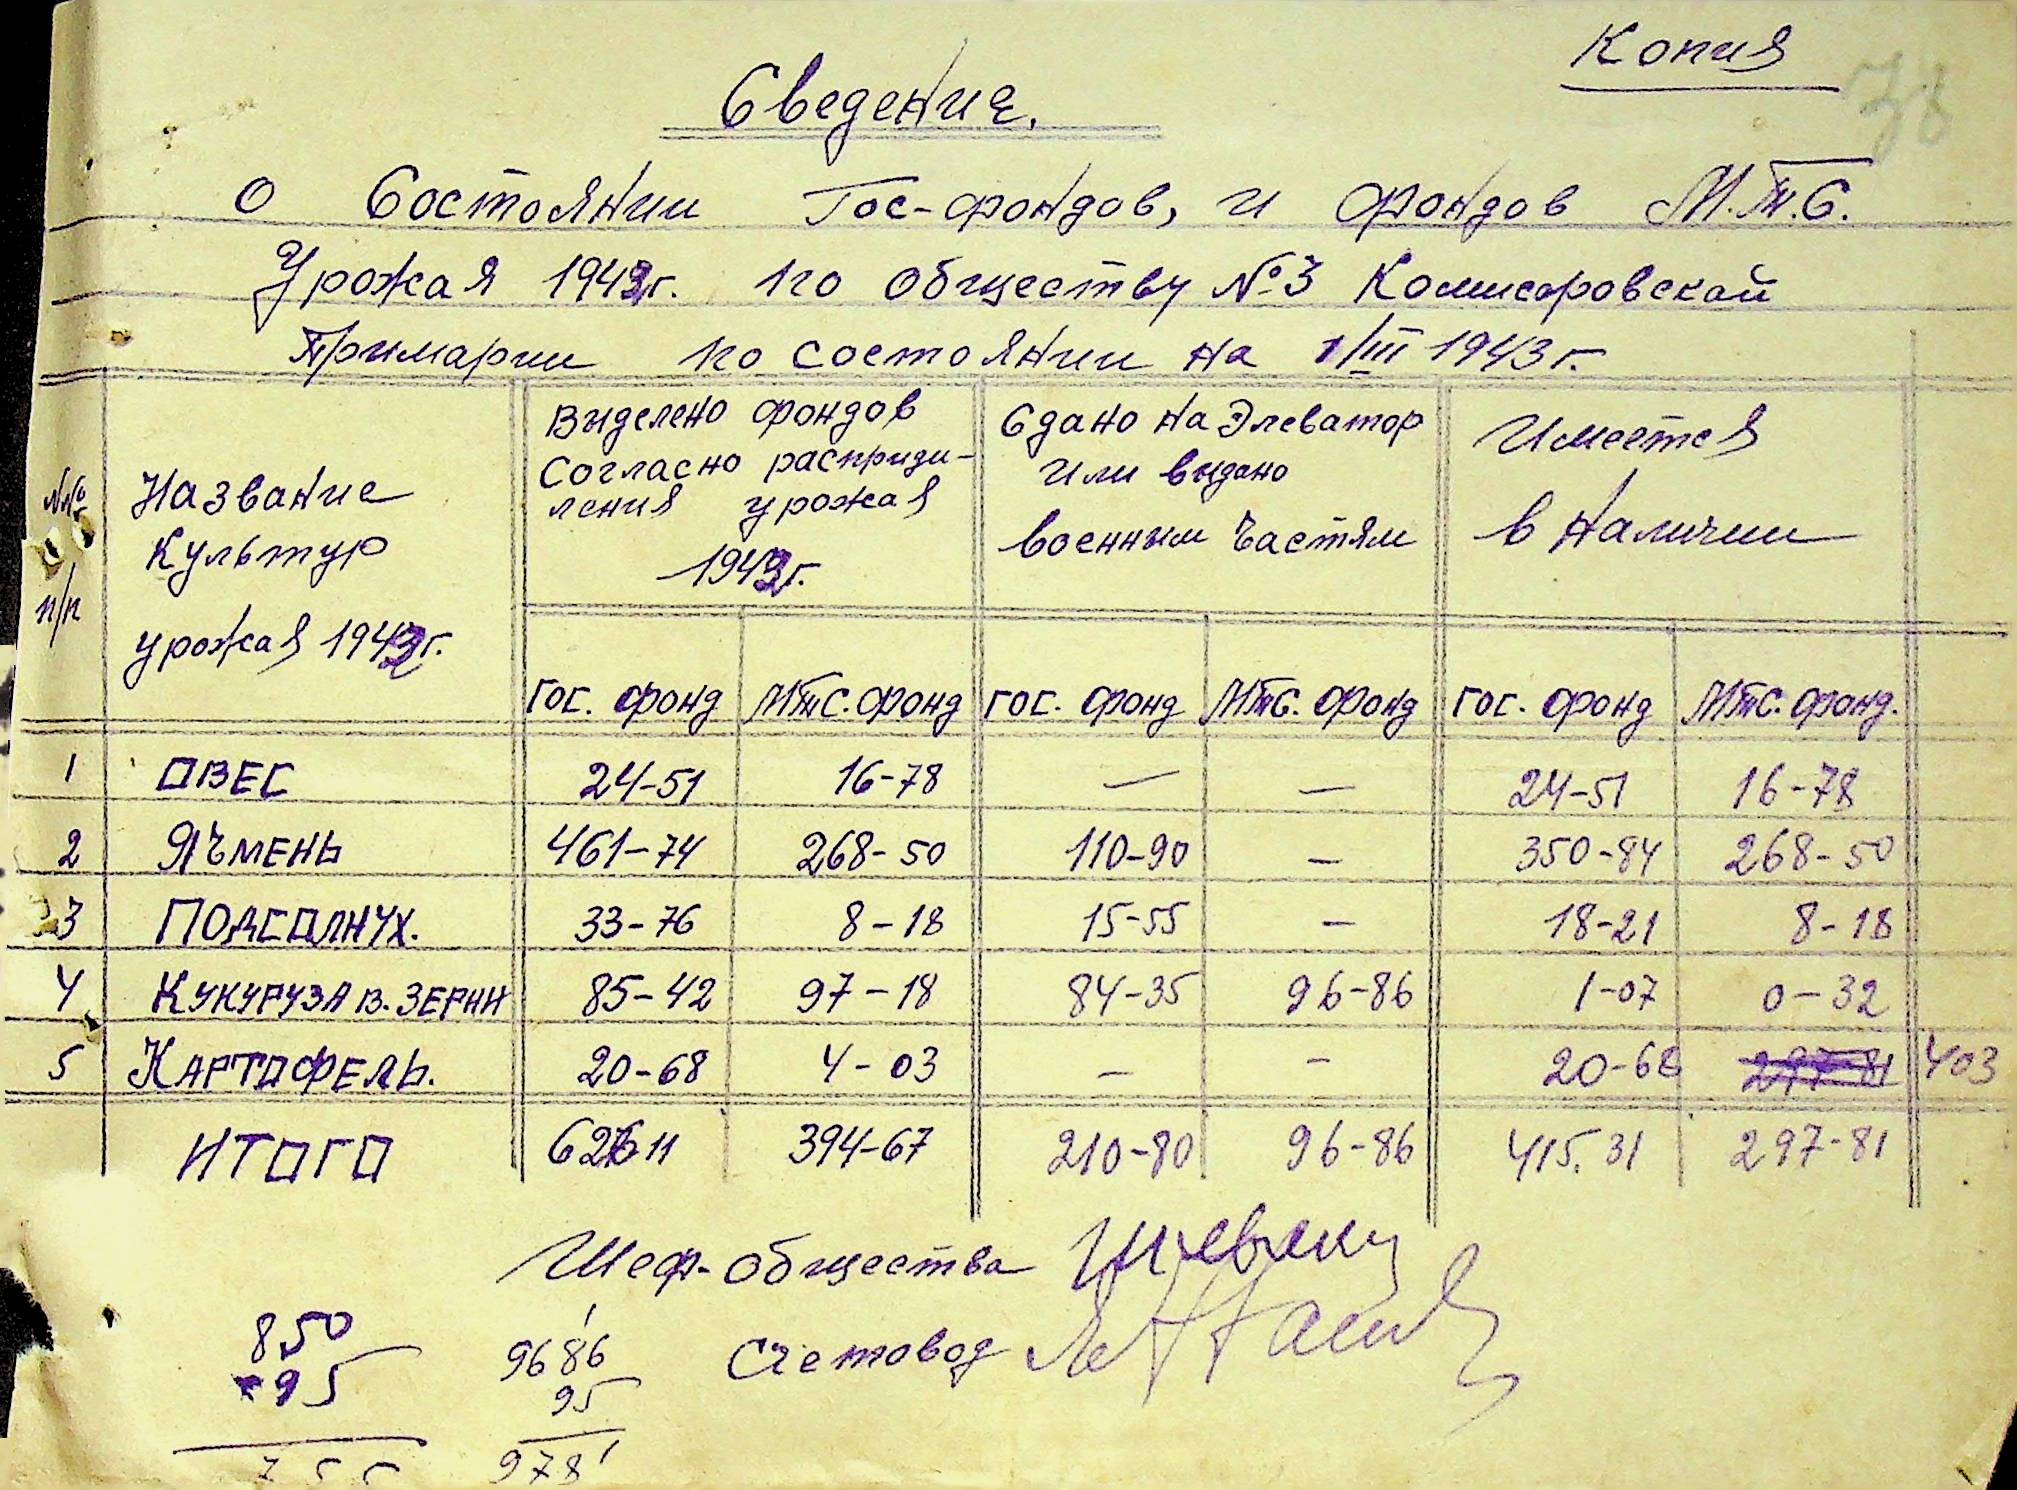 Копия
78
Сведение.
О Состоянии Гос-фондов, и фондов М.Т.С.
Урожая 1942г. по обществу №3 Комисаровской
Примарии по состоянии на 1/III 1943 г.
№№ п/п
Название Культур урожая 1942 г.
Выделено фондов
Согласно расприди-
ления урожая
1942г.
Сдано на Элеватор
или выдано
военным частям
Имеется
в наличии
гос. фонд МТС. фонд гос. фонд МТС. фонд гос. фонд МТС. фонд.
1 ОВЕС 24-51 16-78 — — 24-51 16-78
2 ЯЧМЕНЬ 461-74 268-50 110-90 — 350-84 268-50
3 ПОДСОЛНУХ. 33-76 8-18 15-55 — 18-21 8-18
4 КУКУРУЗА В. ЗЕРНИ 85-42 97-18 84-35 96-86 1-07 0-32
5 КАРТОФЕЛЬ. 20-68 4-03 — - 20-68 297-81 403
ИТОГО 626-11 394-67 210-80 96-86 415.31 297-81
Шеф-общества
Счетовод
850
-95
755
9686
95
9781